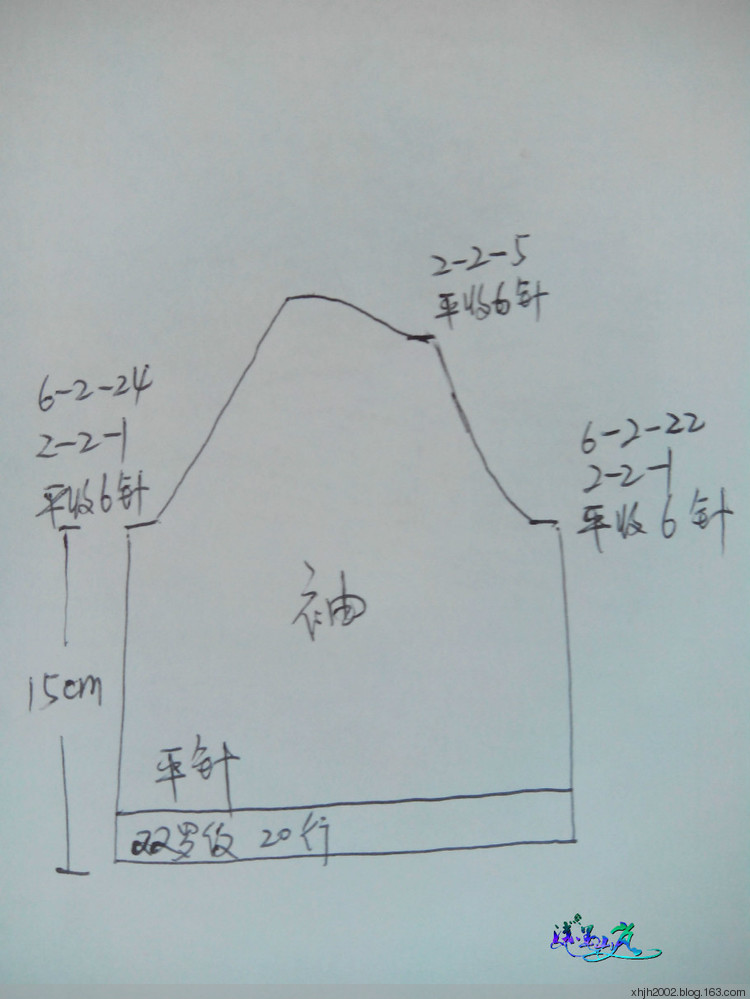 2-2-5
平收6针
6-2-24
2-2-1
平收6针
6-2-22
2-2-1
平收6针
袖
15cm
平针
双罗纹 20行
xhjh2002.blog.163.com